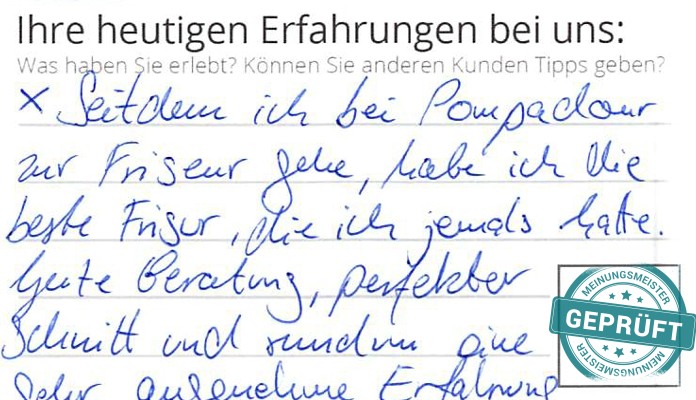 Ihre heutigen Erfahrungen bei uns:
Was haben Sie erlebt? Können Sie anderen Kunden Tipps geben?
x Seitdem ich bei Pompadour
zur Friseur gehe, habe ich die
beste Frisur, die ich jemals hatte.
Gute Beratung, perfekter
Schnitt und rundum eine
sehr angenehme Erfahrung
MEINUNGSMEISTER
GEPRÜFT
MEINUNGSMEISTER